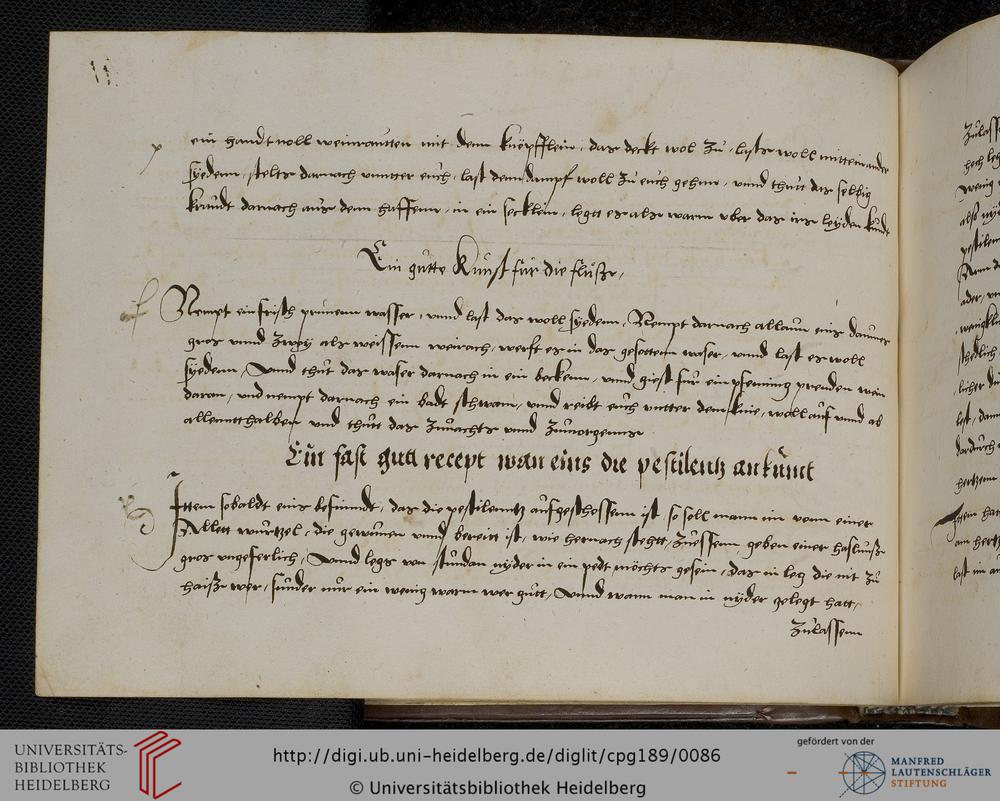 ein handt voll weinrautten mit dem knöpfflein, das deckt wol zu, lasts woll mitteinander
syedenn, stelts darnach vnntter euch, last denn dampf woll zu euch gehnn, vnnd thut das selbig
kraudt darnach aus dem haffenn, in ein secklein, legtt es als warm vber das irs leyden kundt
Ein gutte Kunst für die flüß,
Nempt ein frisch prunenn wasser, vnnd last das woll syedenn, Nempt darnach allaun eins daumes
gros vnnd zwey als weissenn weirach, werft es in das gesottenn waser, vnnd last es woll
syedenn, Vnnd thut das waser darnach in ein beckenn, vnnd giest für ein pfenning prenden wein
daran, vnd nempt darnach ein badt schwam, vnnd reibt euch vntter dem knie, woll auf vnnd ab
allenntthalben vnd thutt das zunachts vnnd zumorgenns
Ein fast gutt recept wan eins die pestilentz ankumt
Ittem sobaldt eins befinndt, das die pestilenntz aufgeschossenn ist, so soll mann im vonn einer
wurtzel, die gewunen vnnd bereitt ist, wie hernach stehtt, zuessenn geben einer haslnuß
gros vngeferlich, Vnnd legs von stundan nyder in ein pedt möchts gesein, das im die nit zu
haiß wer, sunder nur ein wenig warm wer gutt, Vnnd wann man in nyder gelegt hatt,
zulassenn
UNIVERSITÄTS-
BIBLIOTHEK
HEIDELBERG
http://digi.ub.uni-heidelberg.de/diglit/cpg189/0086
© Universitätsbibliothek Heidelberg
gefördert von der
MANFRED
LAUTENSCHLÄGER
STIFTUNG